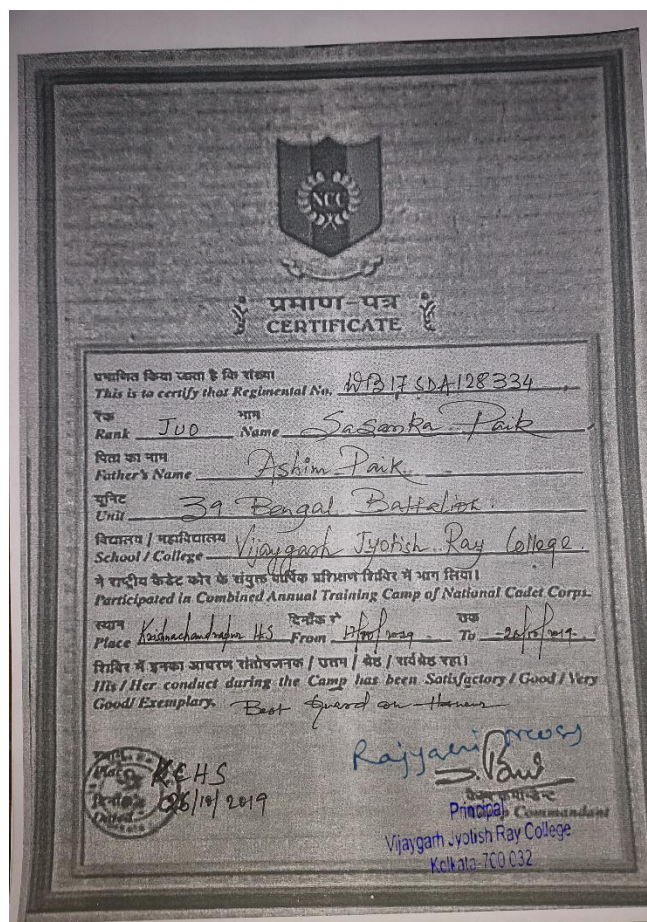 NCC
प्रमाण-पत्र
CERTIFICATE
प्रमाणित किया जाता है कि संख्या
This is to certify that Regimental No. WB17SDA128334
रैंक नाम
Rank JUO Name Sasanka Paik
पिता का नाम
Father's Name Ashim Paik
यूनिट
Unit 39 Bengal Battalion
विद्यालय / महाविद्यालय
School / College Vijaygarh Jyotish Ray College
ने राष्ट्रीय कैडेट कोर के संयुक्त वार्षिक प्रशिक्षण शिविर में भाग लिया।
Participated in Combined Annual Training Camp of National Cadet Corps.
स्थान दिनाँक से तक
Place Krishnachandrapur H.S From To
शिविर में इनका आचरण संतोषजनक / उत्तम / श्रेष्ठ / सर्वश्रेष्ठ रहा।
His / Her conduct during the Camp has been Satisfactory / Good / Very
Good/ Exemplary. Best Guard on Honour
KCHS
Dated 26/10/2019
Principal Commandant
Vijaygarh Jyotish Ray College
Kolkata-700 032